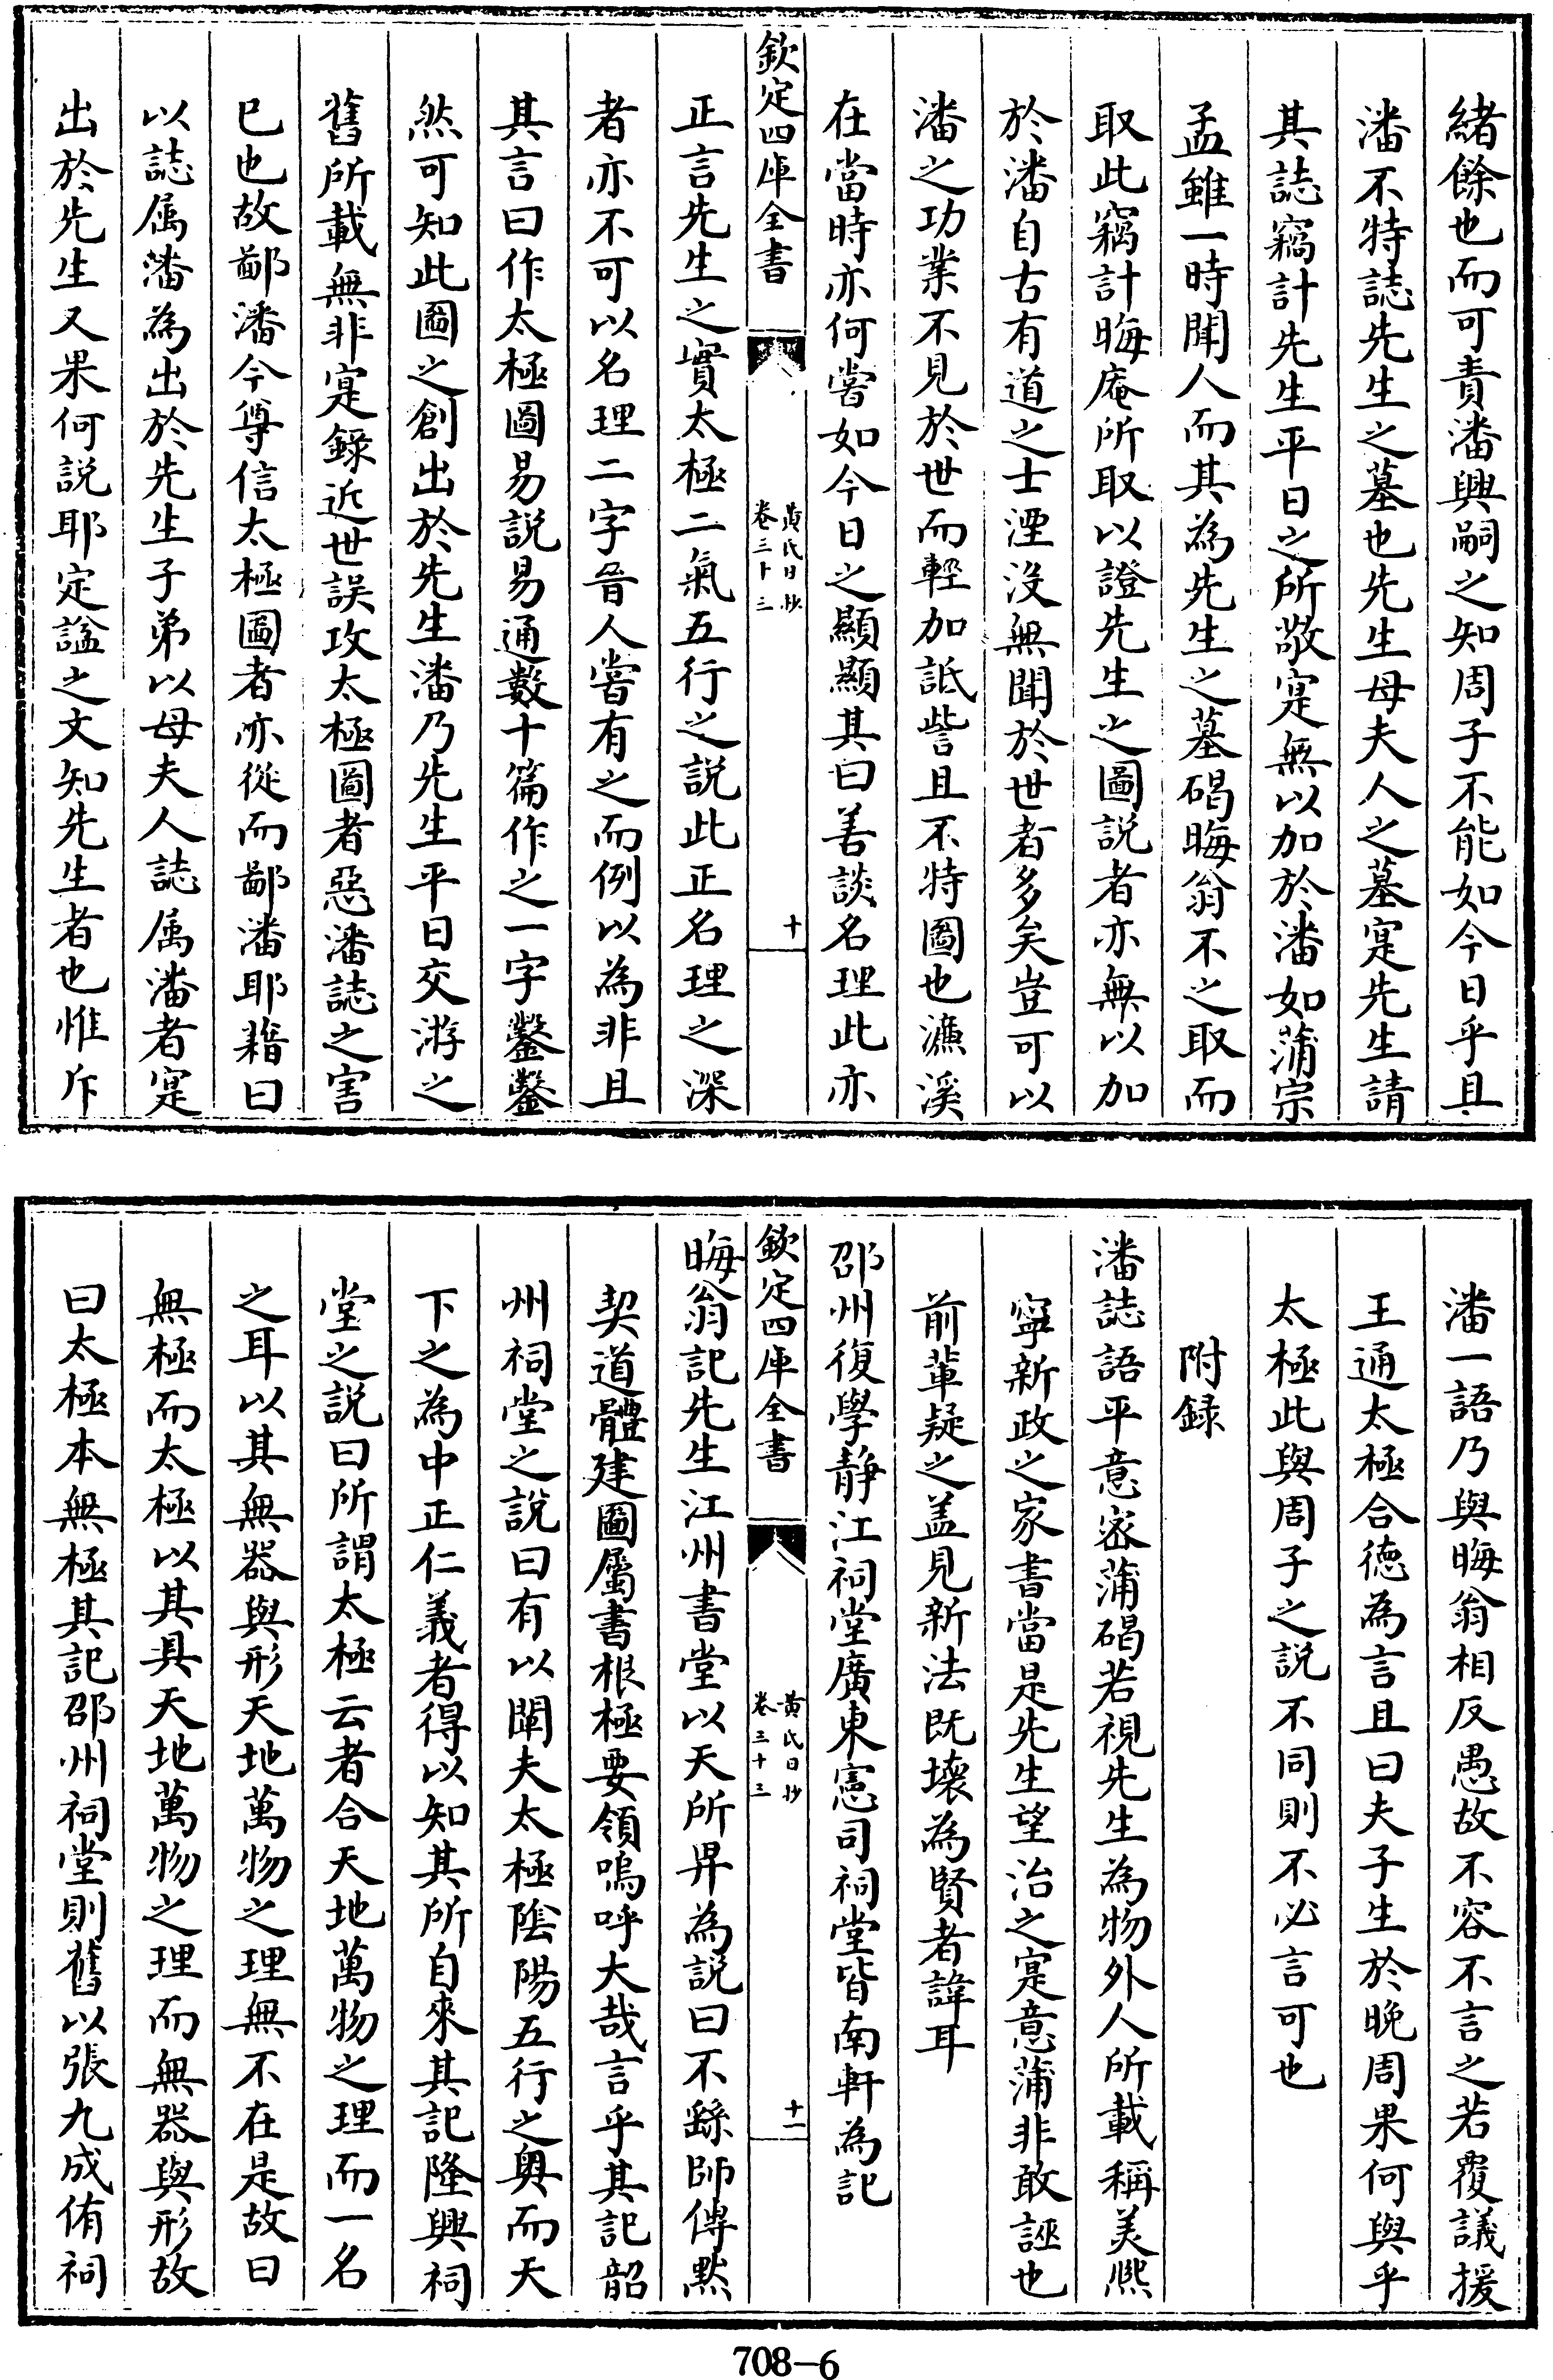 緒餘也而可責潘興嗣之知周子不能如今日乎且
潘不特誌先生之墓也先生母夫人之墓寔先生請
其誌竊計先生平日之所敬寔無以加於潘如蒲宗
孟雖一時聞人而其為先生之墓碣晦翁不之取而
取此竊計晦庵所取以證先生之圖説者亦無以加
於潘自古有道之士湮没無聞於世者多矣豈可以
潘之功業不見於世而輕加詆訾且不特圖也濂溪
在當時亦何嘗如今日之顯顯其曰善談名理此亦
欽定四庫全書
黄氏日抄
卷三十三
十
正言先生之實太極二氣五行之説此正名理之深
者亦不可以名理二字晉人嘗有之而例以為非且
其言曰作太極圖易説易通數十篇作之一字鑿鑿
然可知此圖之創出於先生潘乃先生平日交游之
舊所載無非寔録近世誤攻太極圖者惡潘誌之害
已也故鄙潘今尊信太極圖者亦從而鄙潘耶藉曰
以誌属潘為出於先生子弟以母夫人誌属潘者寔
出於先生又果何説耶定諡之文知先生者也惟斥
潘一語乃與晦翁相反愚故不容不言之若覆議援
王通太極合徳為言且曰夫子生於晚周果何與乎
太極此與周子之説不同則不必言可也
附録
潘誌語平意宻蒲碣若視先生為物外人所載稱美熈
寧新政之家書當是先生望治之寔意蒲非敢誣也
前輩疑之盖見新法既壞為賢者諱耳
邵州復學静江祠堂廣東憲司祠堂皆南軒為記
欽定四庫全書
黄氏日抄
卷三十三
十一
晦翁記先生江州書堂以天所畀為説曰不繇師傳黙
契道體建圖屬書根極要領嗚呼大哉言乎其記韶
州祠堂之説曰有以闡夫太極陰陽五行之奥而天
下之為中正仁義者得以知其所自來其記隆興祠
堂之説曰所謂太極云者合天地萬物之理而一名
之耳以其無器與形而天地萬物之理無不在是故曰
無極而太極以其具天地萬物之理而無器與形故
曰太極本無極其記邵州祠堂則舊以張九成侑祠
708—6